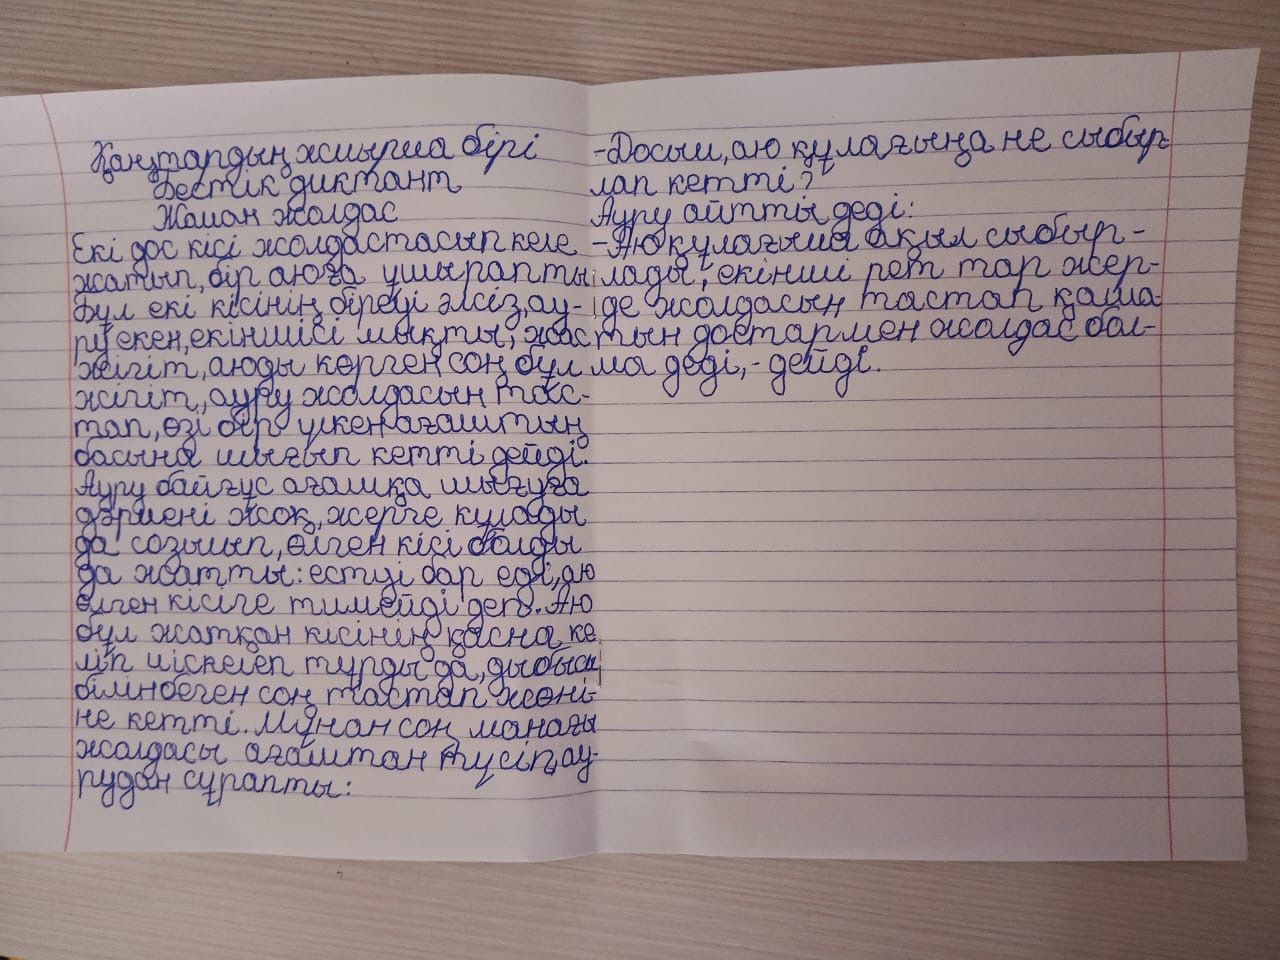 Қаңтардың жиырма бірі
Бестік диктант
Жаман жолдас
Екі дос кісі жолдастасып келе
жатып, бір аюға ұшырапты.
Бұл екі кісінің біреуі әлсіз, ау-
ру екен, екіншісі мықты, жас
жігіт, аюды көрген соң бұл
жігіт, ауру жолдасын тас-
тап, өзі бір үлкен ағаштың
басына шығып кетті дейді.
Ауру байғұс ағашқа шығуға
дәрмені жоқ, жерге құлады
да созылып, өлген кісі болды
да жатты: естуі бар еді, аю
өлген кісіге тимейді деп. Аю
бұл жатқан кісінің қасна ке
ліп иіскелеп тұрды да, дыбысы
білінбеген соң тастап жөні-
не кетті. Мұнан соң манағы
жолдасы ағаштан түсіп, ау-
рудан сұрапты:
-Досым, аю құлағыңа не сыбыр-
лап кетті?
Ауру айтты деді:
-Аю құлағыма ақыл сыбыр-
лады, екінші рет тар жер-
де жолдасын тастап қаша
тын достармен жолдас бол-
ма деді, - дейді.